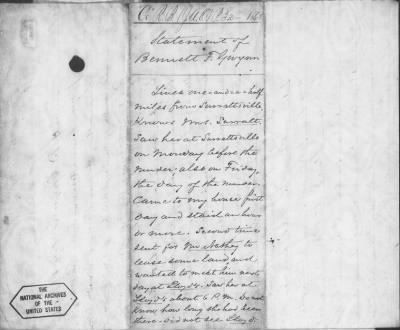 Statement of
Bennett F. Gwynn
Lives one-and-a-half
miles from Surrattsville
Knows Mrs. Surratt.
Saw her at Surrattsville
on Monday before the
murder, also on Friday,
the day of the murder.
Came to my house first
day and staid an hour
or more. Second time
sent for Mr Nothey to
lease some land, and
wanted to meet him next
day at Lloyd's. Saw her at
Lloyd's about 6 P.M. Do not
know how long she had been
there. Did not see Lloyd.
THE
NATIONAL ARCHIVES
OF THE
UNITED STATES